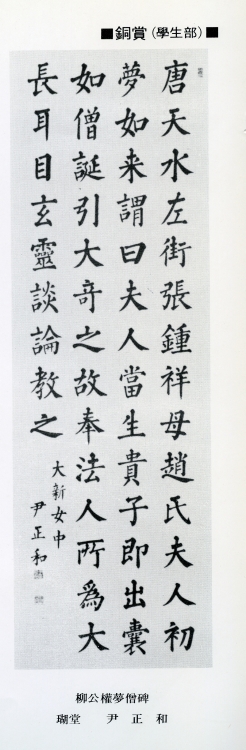 ■銅賞(學生部)■
唐天水左街張鍾祥母趙氏夫人初
夢如来謂曰夫人當生貴子即出囊
如僧誕引大竒之故奉法人所為大
長耳目玄靈談論教之
大新女中
尹正和
柳公權夢僧碑
瑚堂 尹正和